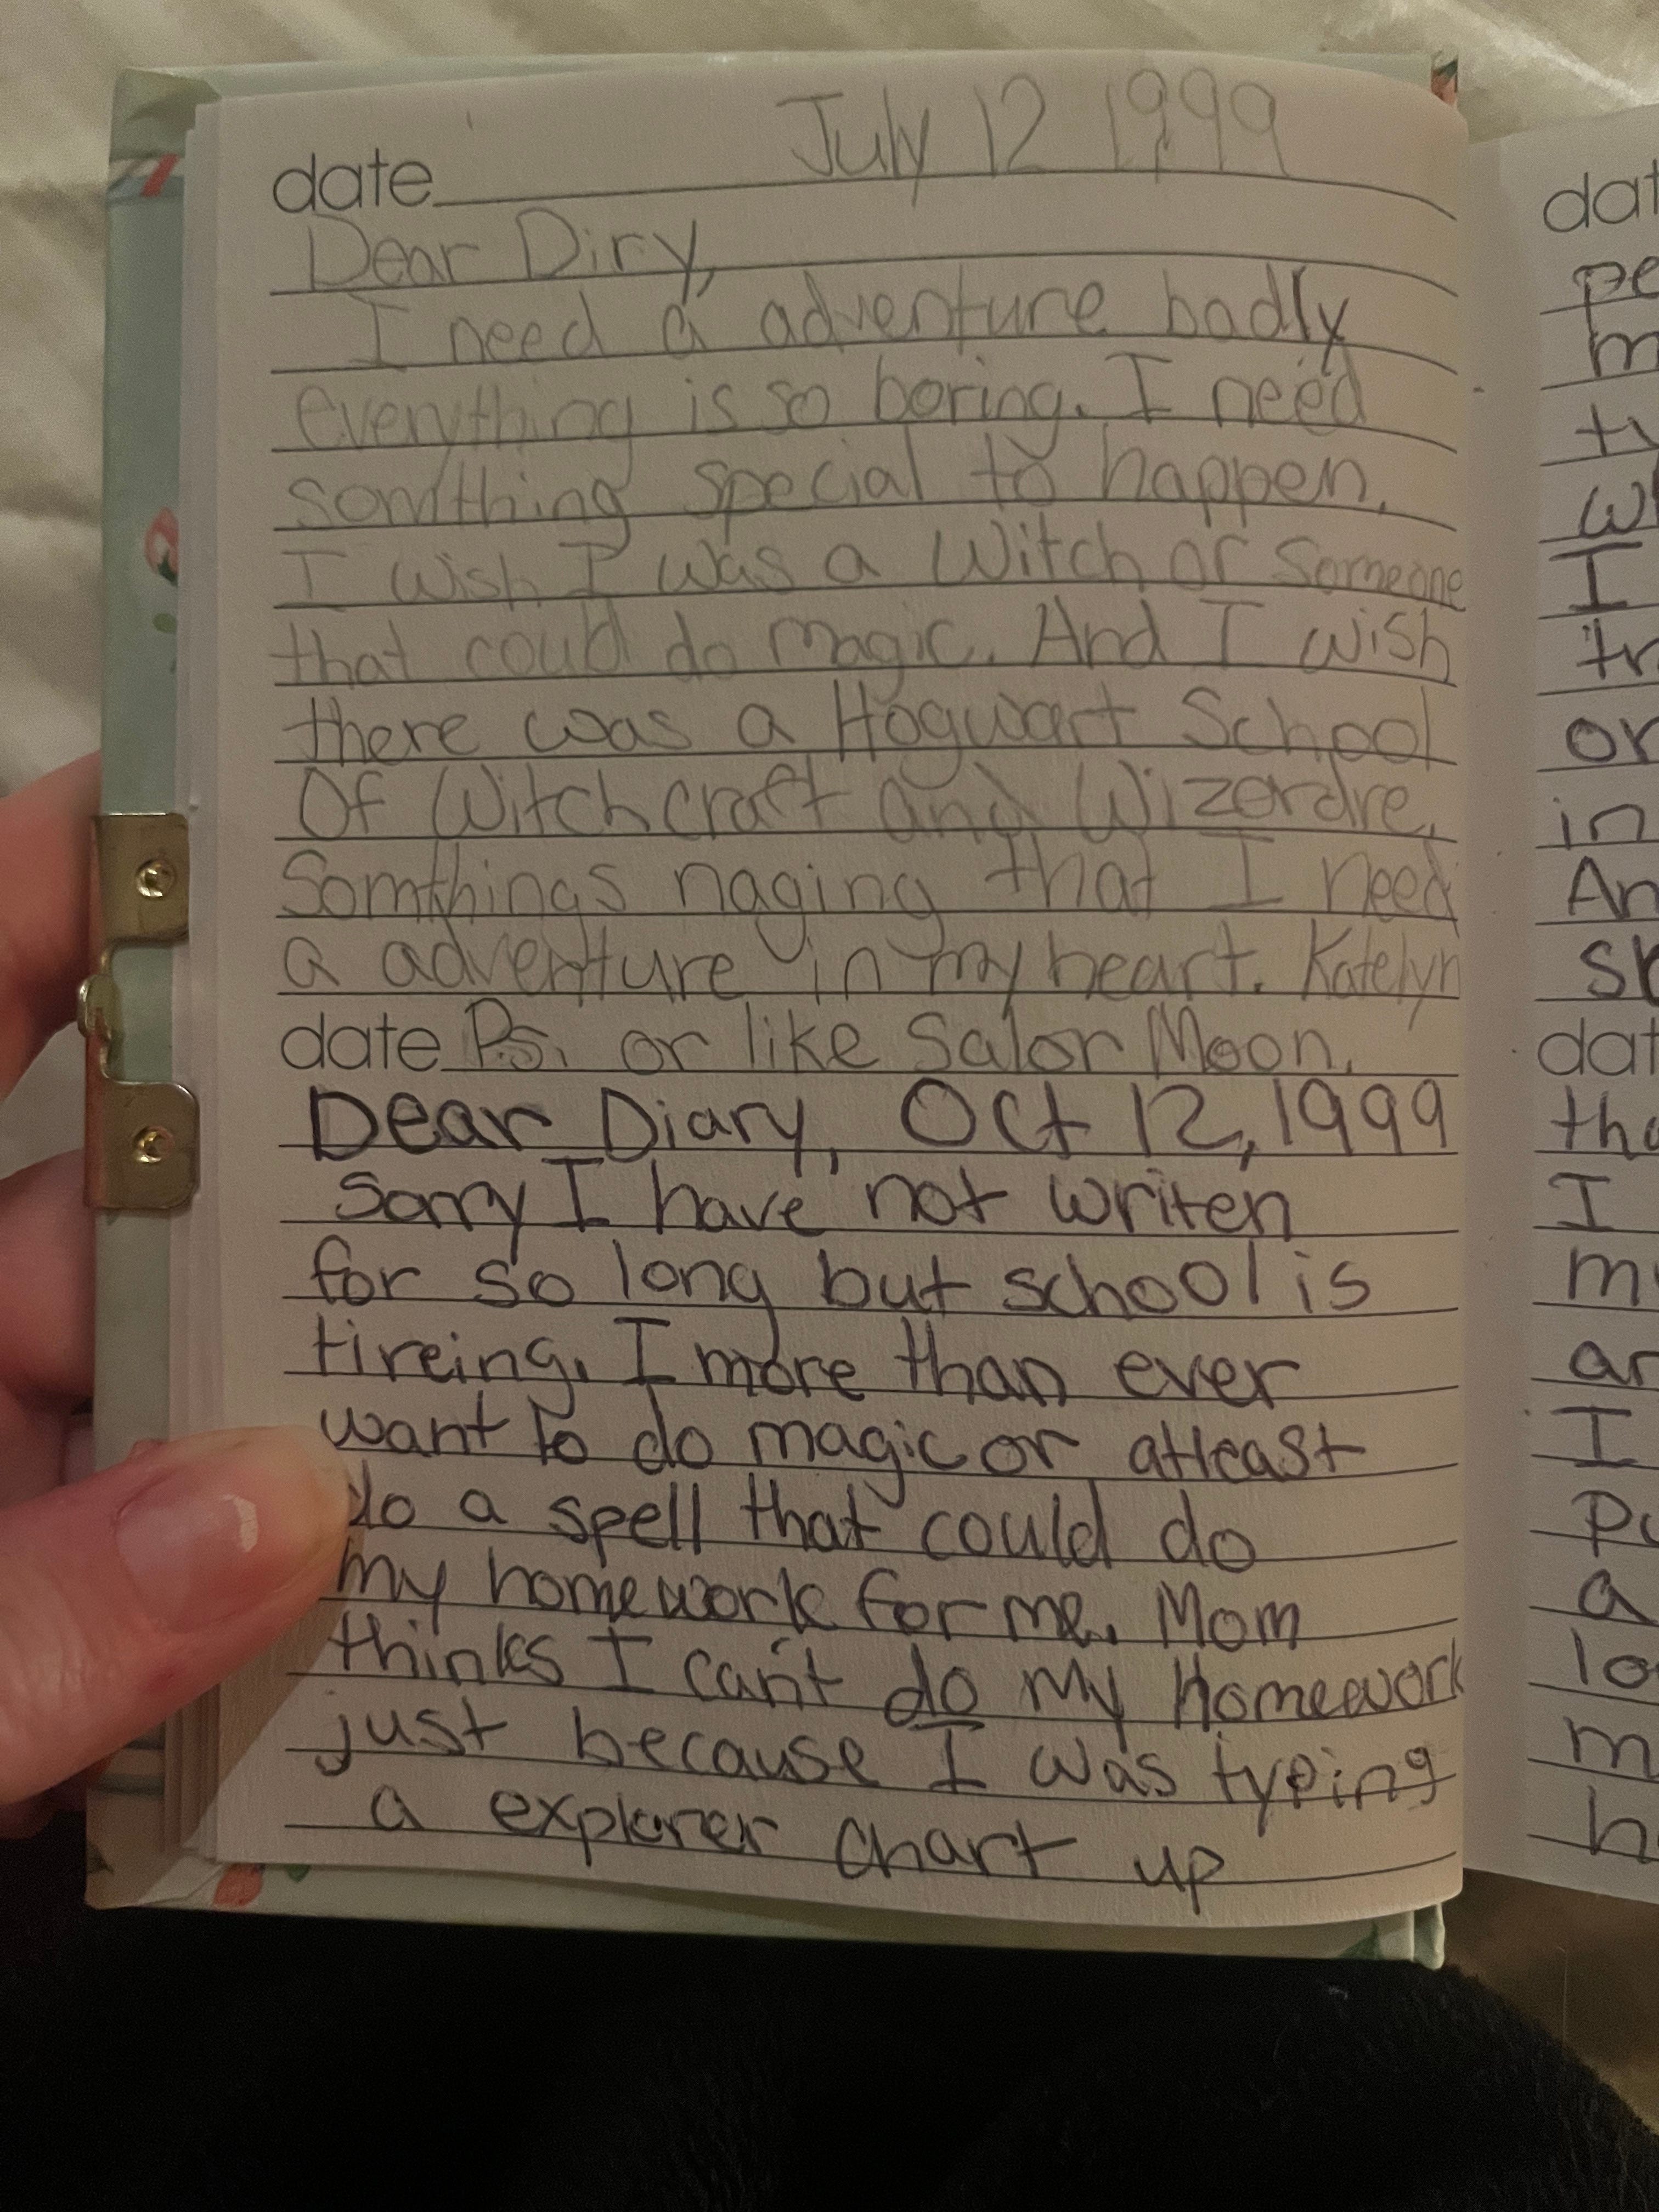 July 12 1999
date
Dear Diry,
I need a adventure badly
everything is so boring. I need
somthing special to happen.
I wish I was a Witch or someone
that could do magic. And I wish
there was a Hogwart School
Of Witchcraft and Wizerdre.
Somthings naging that I need
a adventure in my heart. Katelyn
date Ps. or like Salor Moon.
Dear Diary, Oct 12, 1999
sorry I have not writen
for so long but school is
tireing. I more than ever
want to do magic or atleast
do a spell that could do
my homework for me. Mom
thinks I can't do my homework
just because I was typing
a explorer chart up
dat
pe
m
ty
wh
I
tr
or
in
An
dat
tha
I
m
ar
I
a
lo
m
h